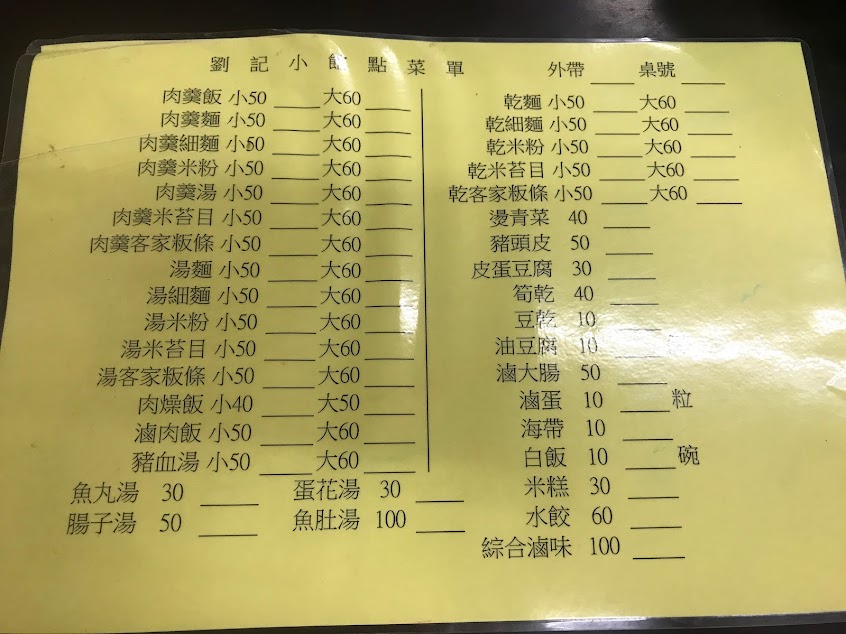 劉記小館點菜單 外帶____ 桌號____
肉羹飯 小50 ____大60 ____
肉羹麵 小50 ____大60 ____
肉羹細麵 小50 ____大60 ____
肉羹米粉 小50 ____大60 ____
肉羹湯 小50 ____大60 ____
肉羹米苔目 小50 ____大60 ____
肉羹客家粄條 小50 ____大60 ____
湯麵 小50 ____大60 ____
湯細麵 小50 ____大60 ____
湯米粉 小50 ____大60 ____
湯米苔目 小50 ____大60 ____
湯客家粄條 小50 ____大60 ____
肉燥飯 小40 ____大50 ____
滷肉飯 小50 ____大60 ____
豬血湯 小50 ____大60 ____
魚丸湯 30 ____ 蛋花湯 30 ____
腸子湯 50 ____ 魚肚湯 100 ____
乾麵 小50 ____大60 ____
乾細麵 小50 ____大60 ____
乾米粉 小50 ____大60 ____
乾米苔目 小50 ____大60 ____
乾客家粄條 小50 ____大60 ____
燙青菜 40 ____
豬頭皮 50 ____
皮蛋豆腐 30 ____
筍乾 40 ____
豆乾 10 ____
油豆腐 10 ____
滷大腸 50 ____
滷蛋 10 ____粒
海帶 10 ____
白飯 10 ____碗
米糕 30 ____
水餃 60 ____
綜合滷味 100 ____